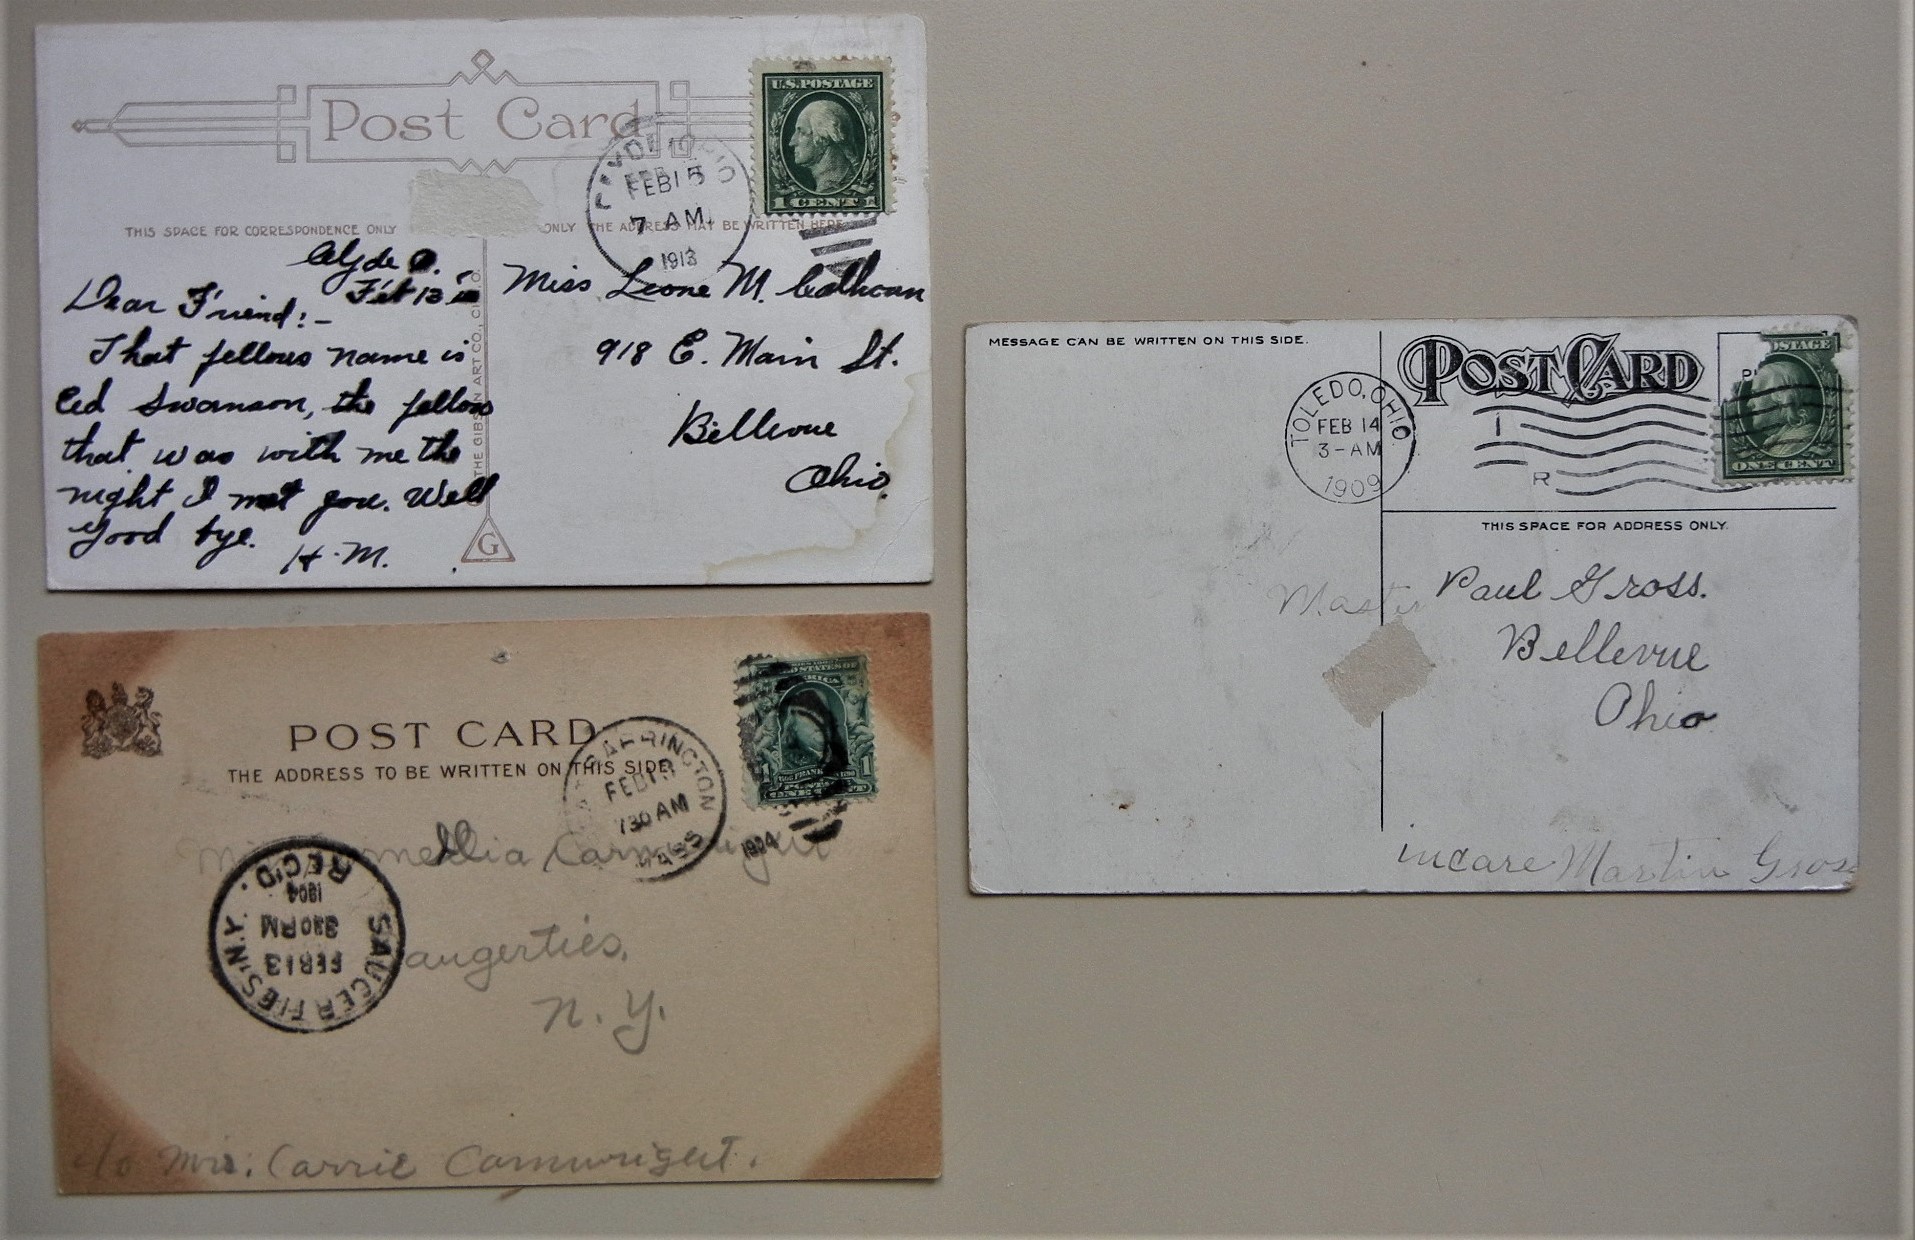 Post Card
U.S. POSTAGE
1 CENT 1
CLYDE, OHIO
FEB 15
7 AM
1913
THIS SPACE FOR CORRESPONDENCE ONLY
ONLY THE ADDRESS MAY BE WRITTEN HERE
Clyde O.
Feb 13
Dear Friend:-
That fellows name is
Ed Swanson, the fellow
that was with me the
night I met you. Well
Good bye.
H. M.
THE GIBSON ART CO., CIN. O.
G
Miss Leone M. Calhoun
918 E. Main St.
Bellevue
Ohio.
POST CARD
THE ADDRESS TO BE WRITTEN ON THIS SIDE
BARRINGTON
FEB 13
730 AM
MASS
1904
Carnwright
Saugerties,
N. Y.
c/o Mrs. Carrie Carnwright.
SAUGERTIES N.Y.
FEB 13
330 PM
1904
REC'D.
MESSAGE CAN BE WRITTEN ON THIS SIDE.
POST CARD
OSTAGE
ONE CENT
TOLEDO, OHIO
FEB 14
3-AM
1909
I
R
THIS SPACE FOR ADDRESS ONLY.
Master Paul Gross.
Bellevue
Ohio
incare Martin Gross